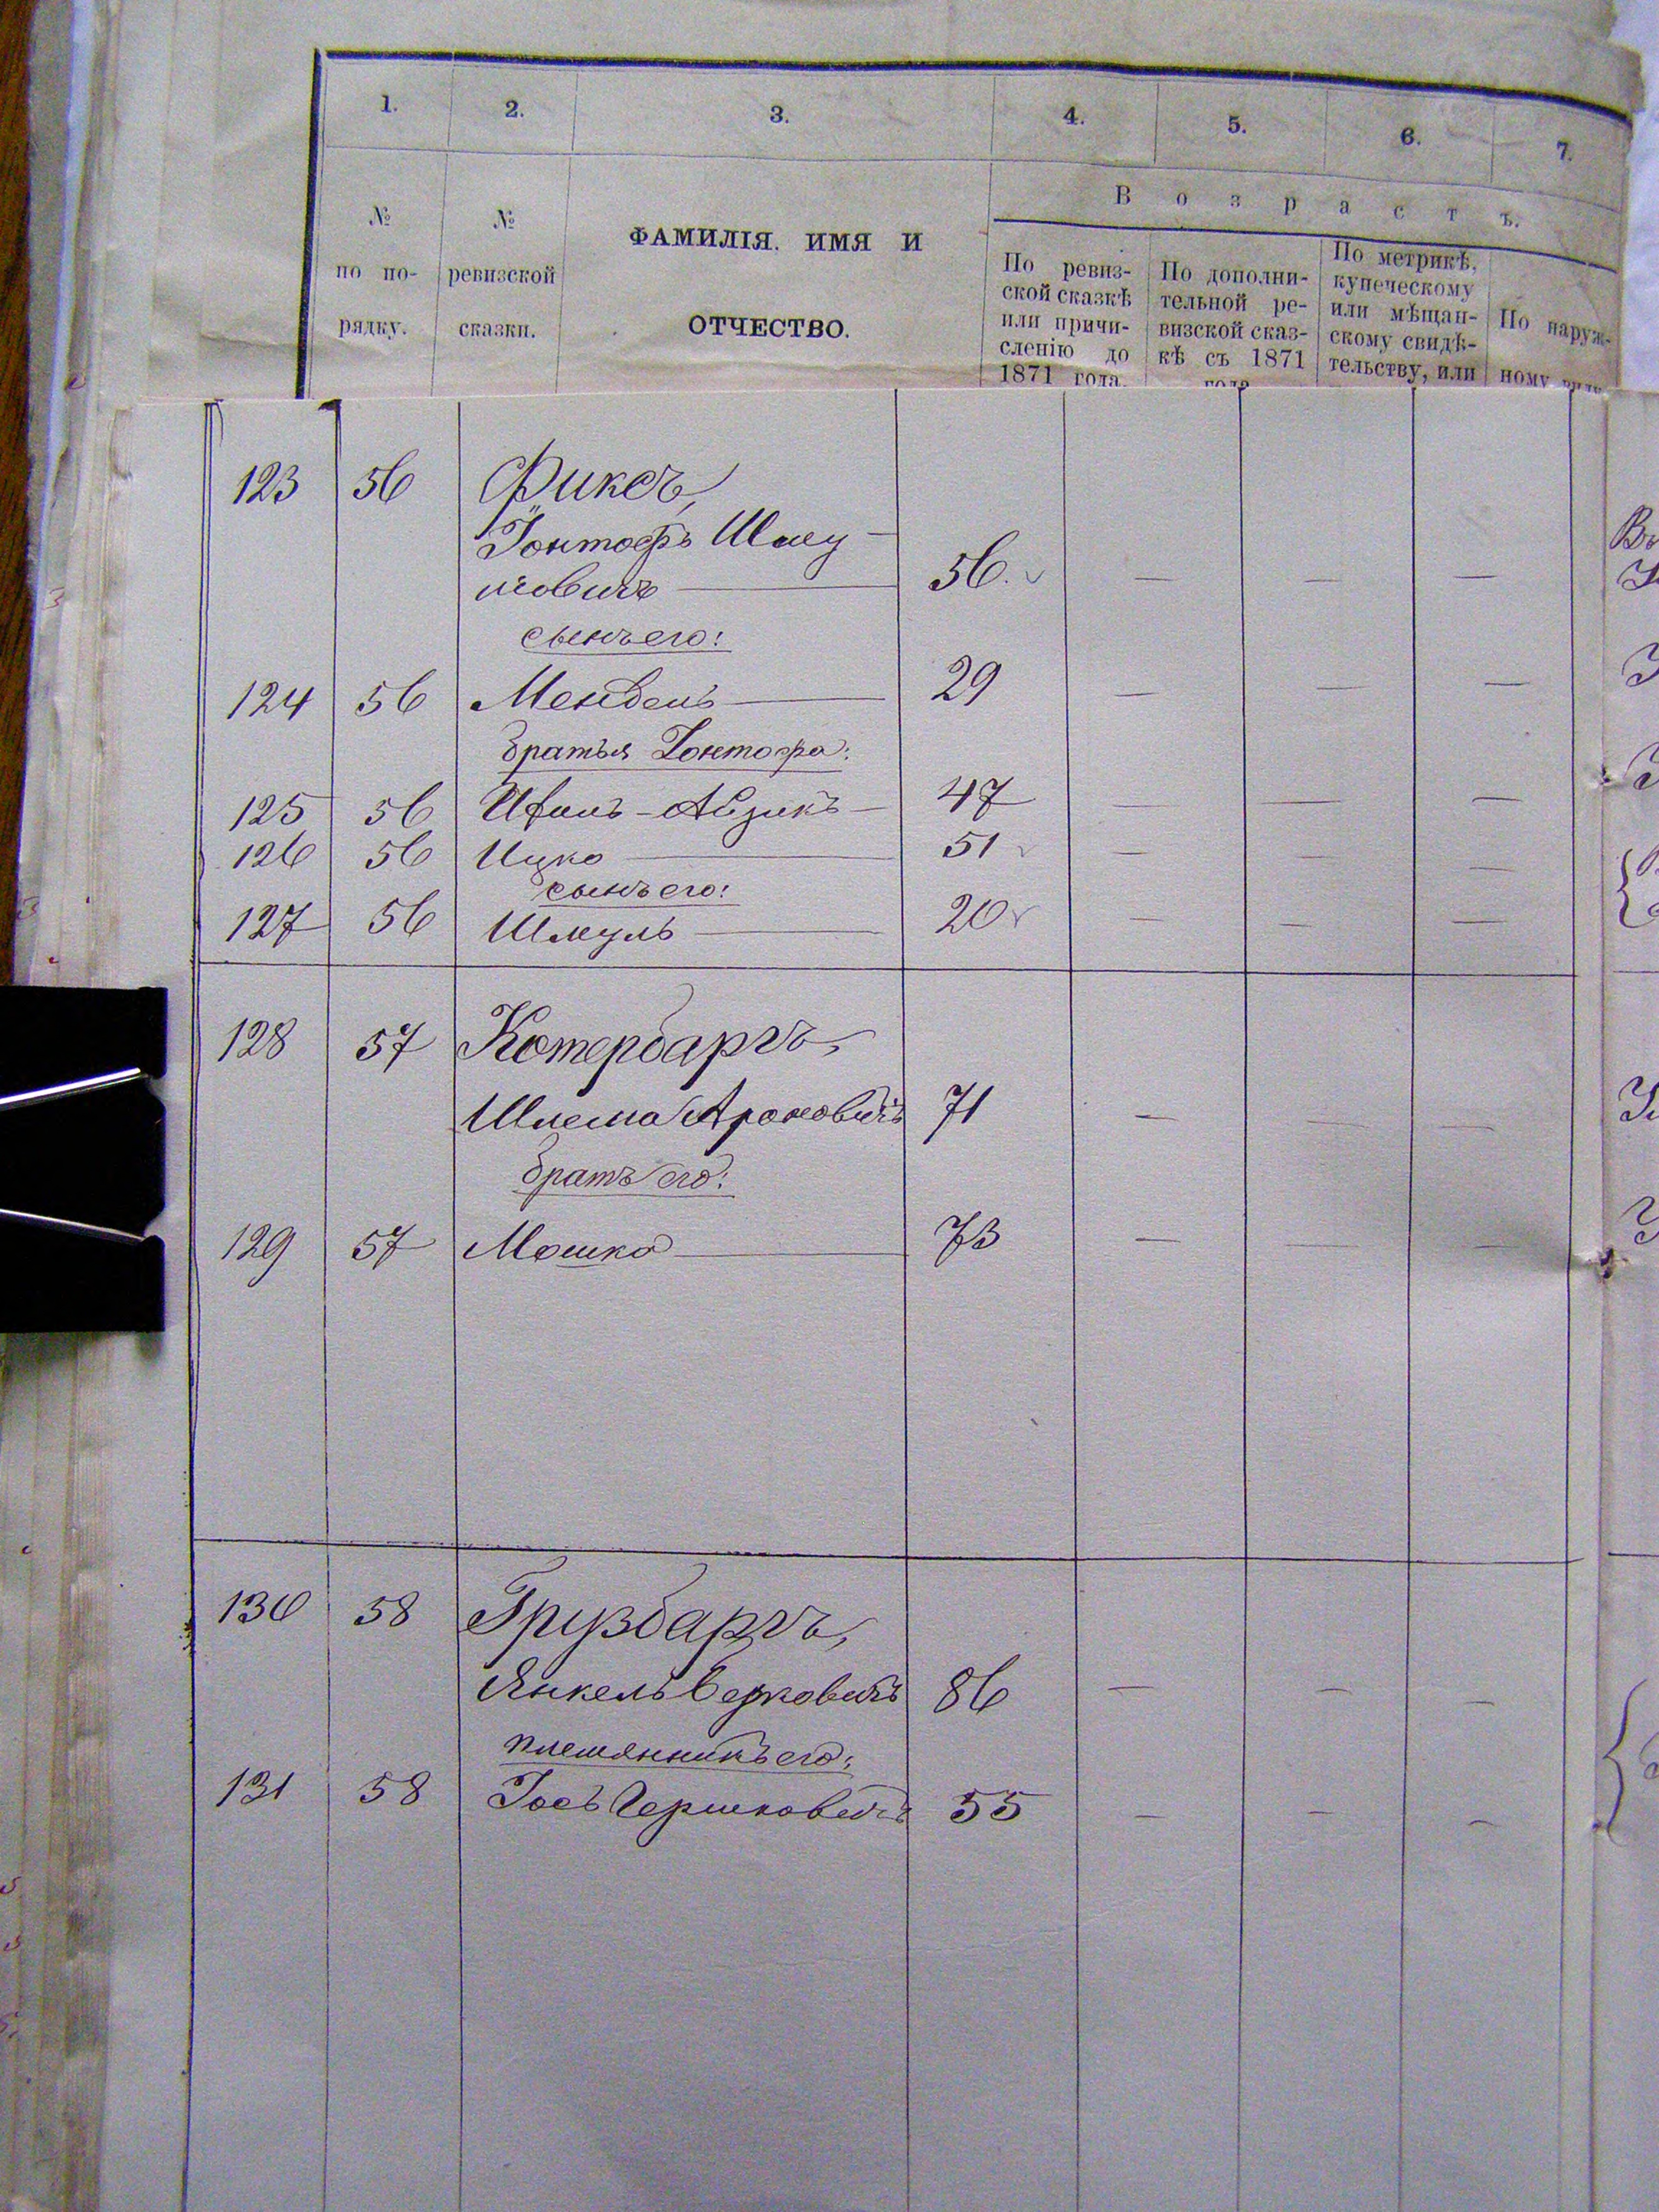 1. 2. 3. 4. 5. 6. 7.
В о з р а с т ъ.
№ по по- рядку.
№ ревизской сказки.
ФАМИЛІЯ, ИМЯ И
ОТЧЕСТВО.
По ревиз-
ской сказкѣ
или причи-
сленію до
1871 года.
По дополни-
тельной ре-
визской сказ-
кѣ съ 1871
года
По метрикѣ,
купеческому
или мѣщан-
скому свидѣ-
тельству, или
По наруж-
ному виду
123 56 Фиксъ,
Іонтофъ Шму-
левичъ 56. — — —
сынъ его:
124 56 Мендель 29 — — —
братья Іонтофа:
125 56 Ицко 51 — — —
сынъ его:
127 56 Шмуль 20 — — —
128 57 Котербаргъ,
Шлема Ароновичъ 71 — — —
братъ его:
129 57 Мошко 73 — — —
130 58 Грузбаргъ,
Янкель Берковичъ 86 — — —
племянникъ его:
131 58 Іось Гершковичъ 55 — — —